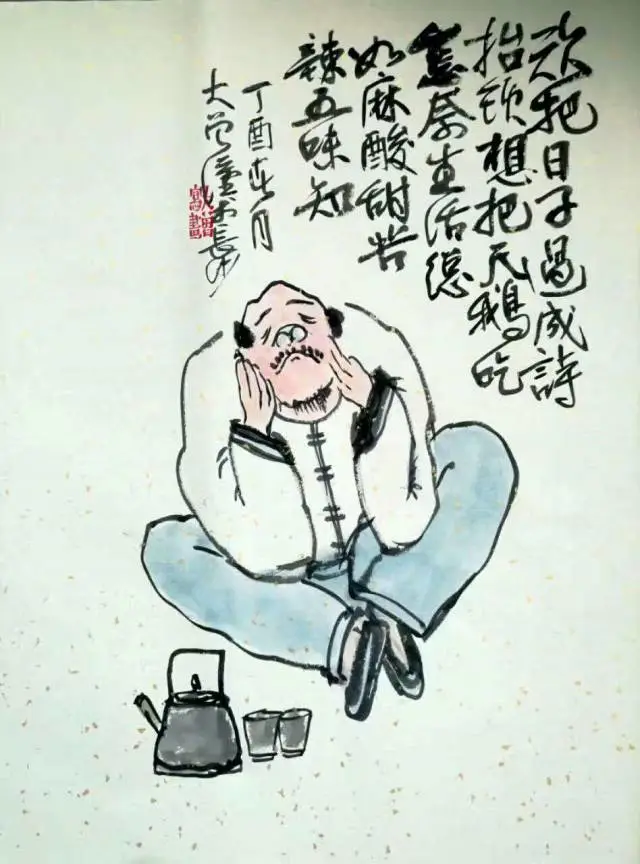 欲把日子過成詩
抬頭想把天鵝吃
怎奈生活總
如麻酸甜苦
辣五味知
丁酉春月
大